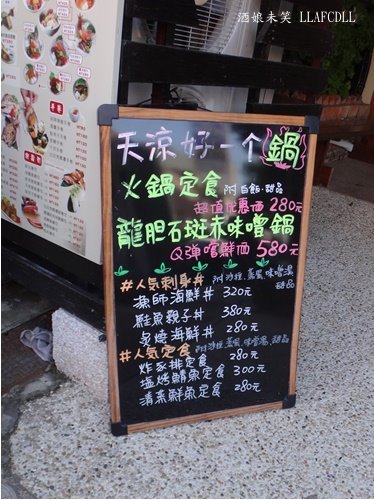 酒娘未笑 LLAFCDLL
天涼好一个鍋
火鍋定食 附白飯.甜品
超值优惠価280元
龍胆石斑赤味噌鍋
Q弹嚐鮮価580元
#人気刺身丼 附沙拉.蒸蛋.味噌湯
甜品
漁師海鮮丼 320元
鮭魚親子丼 380元
炙燒海鮮丼 280元
#人気定食 附沙拉.蒸蛋.味噌湯.甜品
炸豬排定食 280元
塩烤鯖魚定食 300元
清蒸鮮魚定食 280元